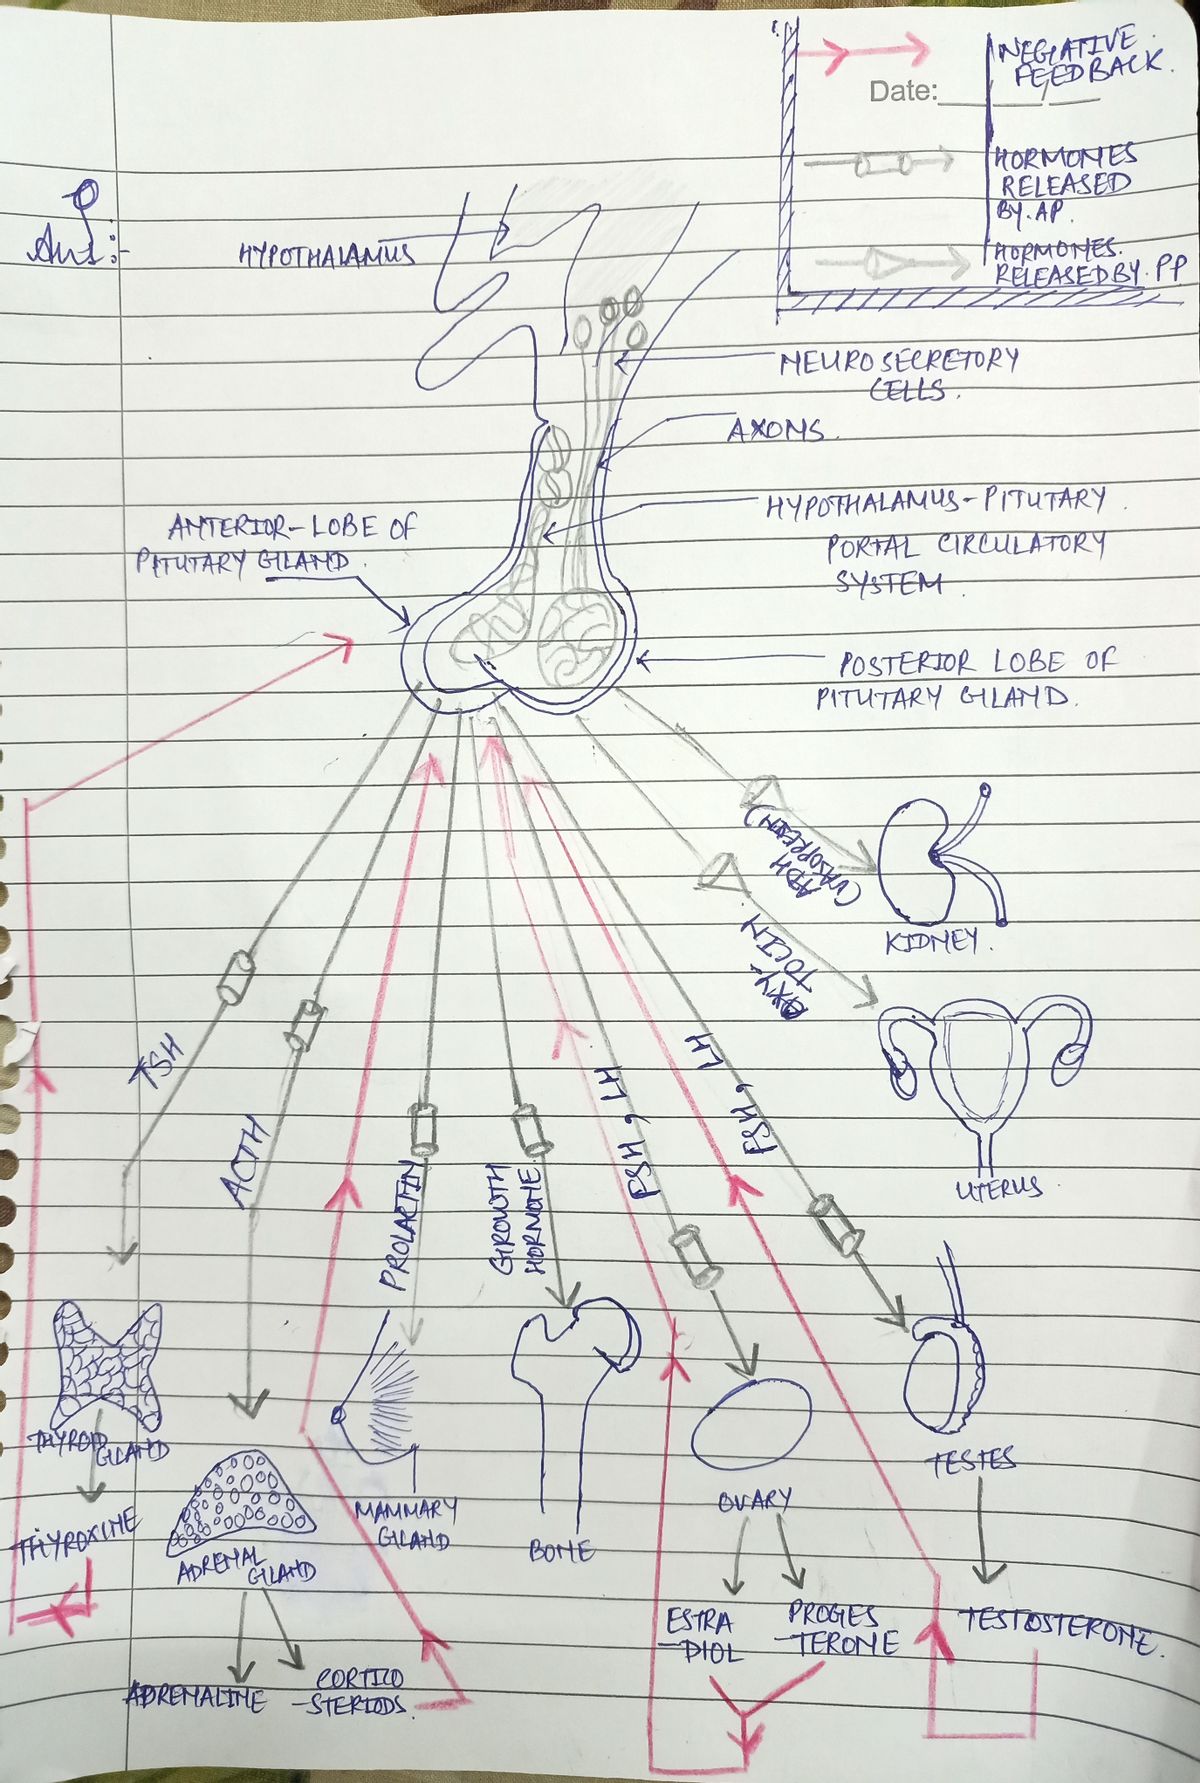 NEGATIVE
FEEDBACK.
Date:
HORMONES
RELEASED
BY. AP.
HORMONES.
RELEASED BY. PP
Q
Ans:-
HYPOTHALAMUS
NEUROSECRETORY
CELLS.
AXONS.
HYPOTHALAMUS-PITUTARY
PORTAL CIRCULATORY
SYSTEM.
ANTERIOR-LOBE OF
PITUTARY GLAND.
POSTERIOR LOBE OF
PITUTARY GLAND.
ADH
(VASOPRESSIN)
KIDNEY.
OXY-
TOCIN
UTERUS.
TSH
ACTH
PROLACTIN
GROWTH
HORMONE
FSH, LH
FSH, LH
THYROID
GLAND
THYROXINE
ADRENAL
GLAND
ADRENALINE
CORTICO
-STERIODS.
MAMMARY
GLAND
BONE
OVARY
ESTRA
-DIOL
PROGES
-TERONE
TESTES
TESTOSTERONE.